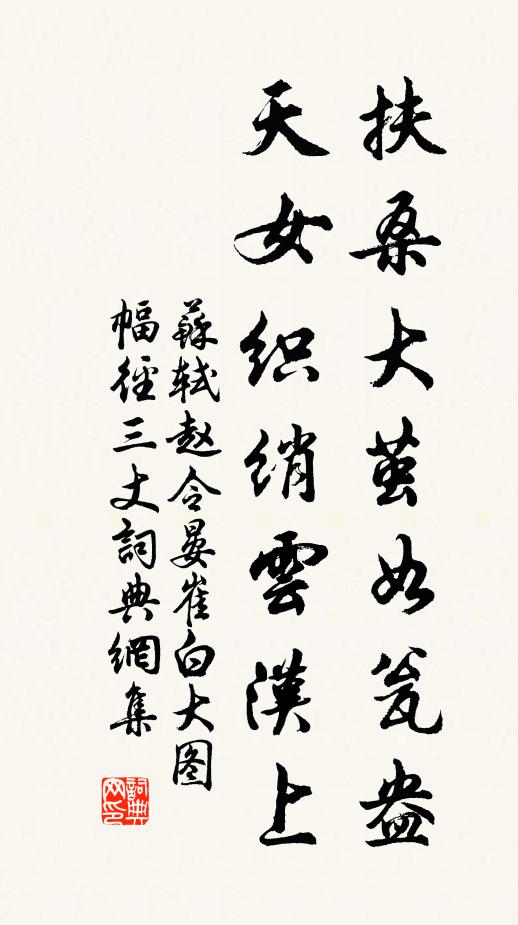 扶桑大茧如瓮盎
天女织绡雲漢上
蘇轼赵令晏崔白大图
幅徑三丈詞典網集
詞典网印